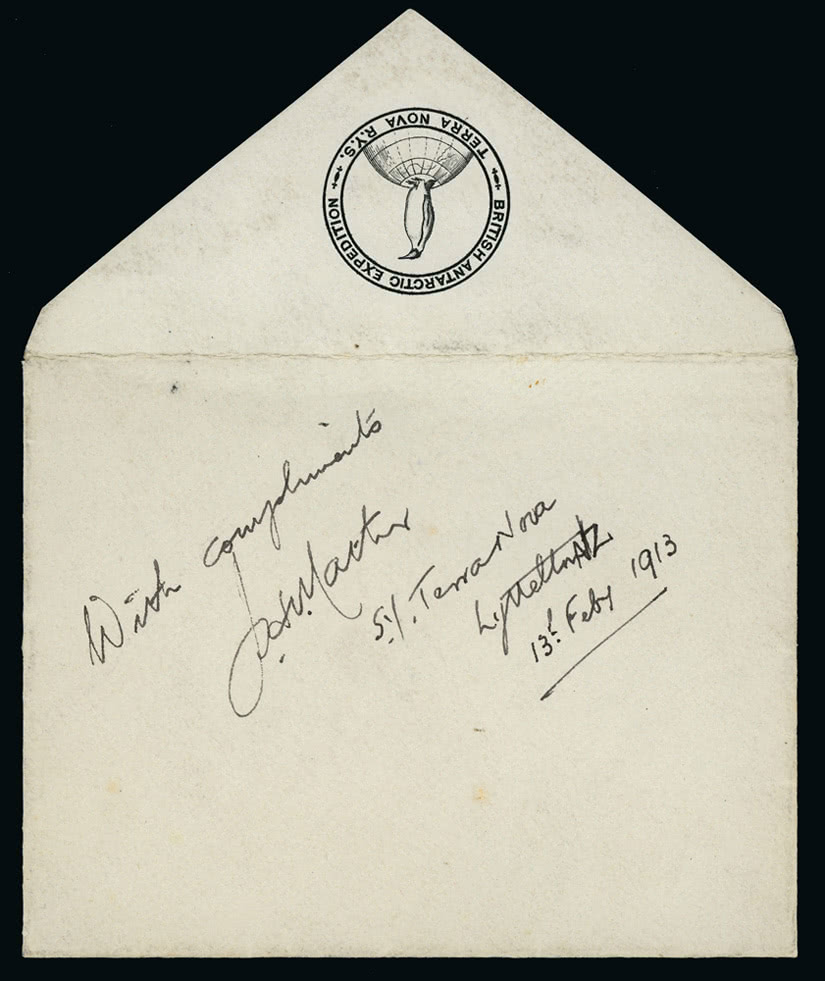 TERRA NOVA R.Y.S.
BRITISH ANTARCTIC EXPEDITION
With compliments
J.H. Mather
S.Y. Terra Nova
Lyttelton NZ
13th Feby 1913